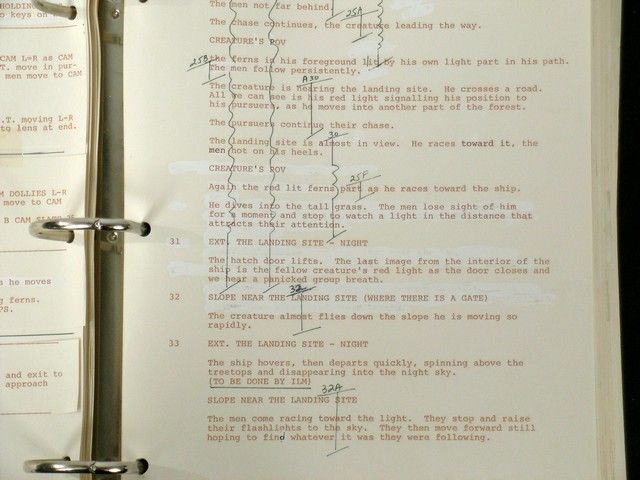 HOLDING
o keys on
CAM L=R as CAM
T. move in pur-
men move to CAM
.T. moving L=R
to lens at end.
M DOLLIES L-R
not to CAM
B CAM
s he moves
g ferns.
PS.
and exit to
approach
The men not far behind.
25A
The chase continues, the creature leading the way.
CREATURE'S POV
25B
the ferns in his foreground lit by his own light part in his path.
The men follow persistently.
A30
The creature is nearing the landing site. He crosses a road.
All we can see is his red light signalling his position to
his pursuers, as he moves into another part of the forest.
The pursuers continue their chase.
30
The landing site is almost in view. He races toward it, the
men hot on his heels.
CREATURE'S POV
25F
Again the red lit ferns part as he races toward the ship.
He dives into the tall grass. The men lose sight of him
for a moment and stop to watch a light in the distance that
attracts their attention.
31 EXT. THE LANDING SITE - NIGHT
The hatch door lifts. The last image from the interior of the
ship is the fellow creature's red light as the door closes and
we hear a panicked group breath.
32
32 SLOPE NEAR THE LANDING SITE (WHERE THERE IS A GATE)
The creature almost flies down the slope he is moving so
rapidly.
33 EXT. THE LANDING SITE - NIGHT
The ship hovers, then departs quickly, spinning above the
treetops and disappearing into the night sky.
(TO BE DONE BY ILM)
32A
SLOPE NEAR THE LANDING SITE
The men come racing toward the light. They stop and raise
their flashlights to the sky. They then move forward still
hoping to find whatever it was they were following.